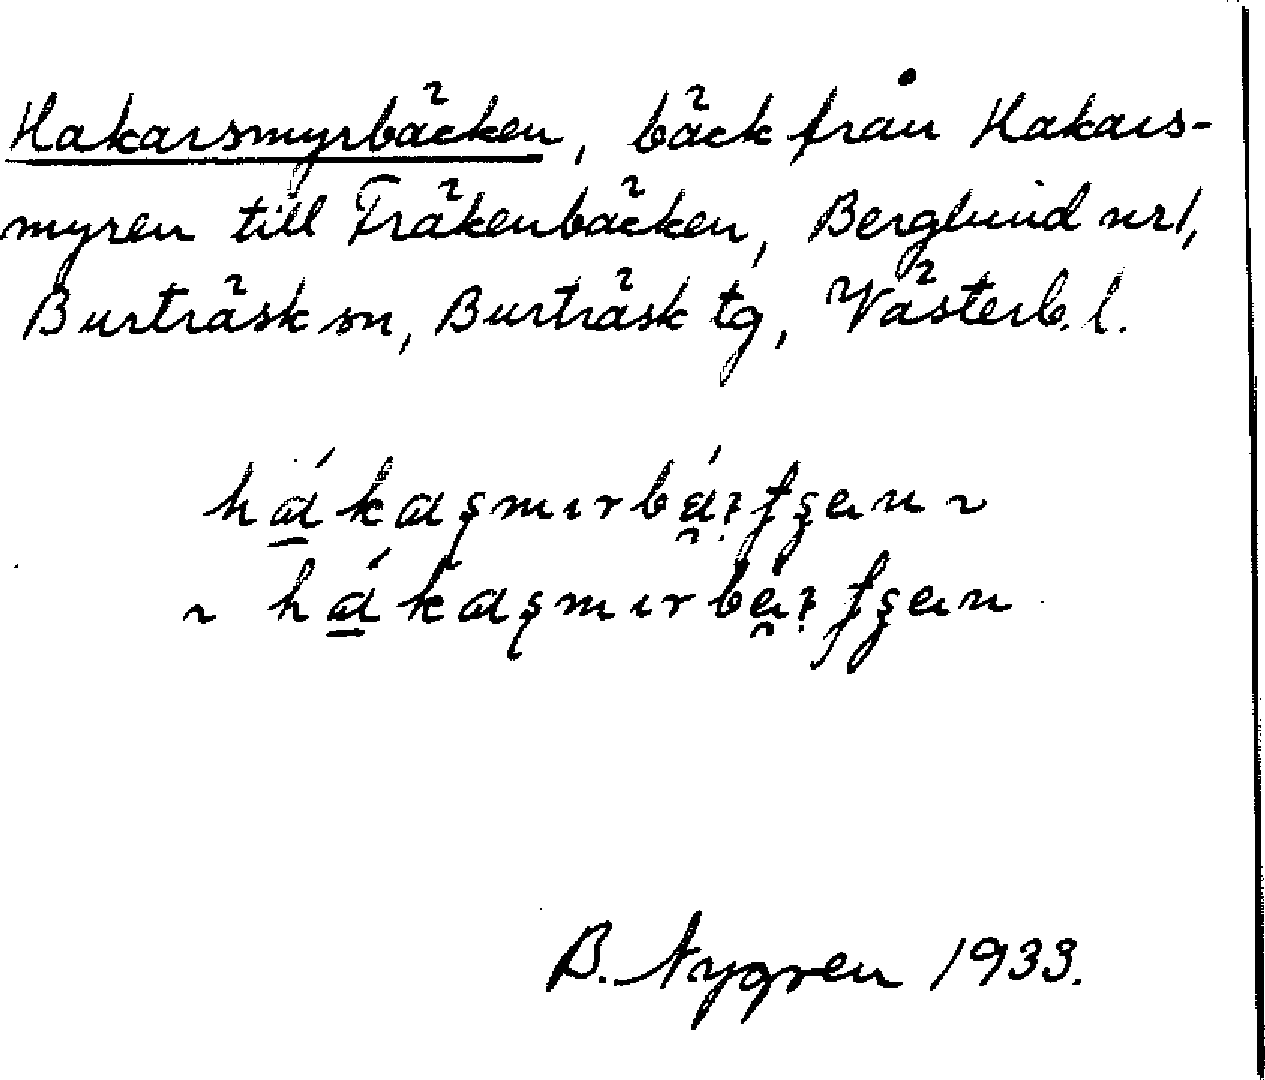 Hakarsmyrbäcken, bäck från Hakars-
myren till Fräkenbäcken, Berglund nr 1,
Burträsk sn, Burträsk tg, Västerb. l.
B. Nygren 1933.